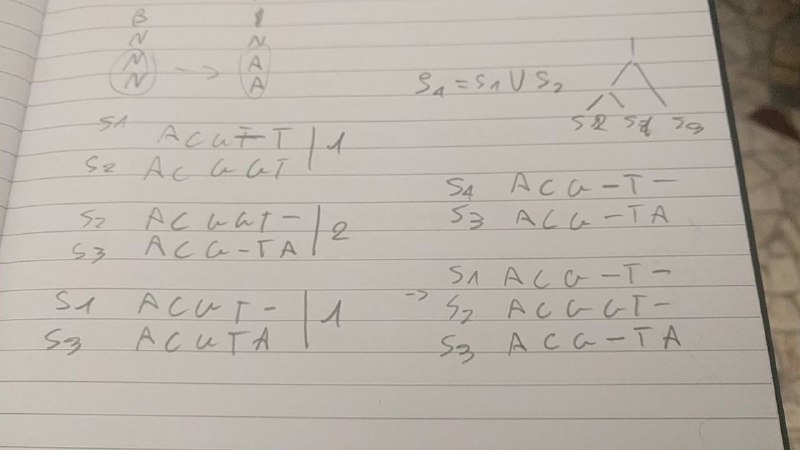 B 1
N N
N -> A
N A
S1 ACG-T | 1
S2 ACGGT
S2 ACGGT- | 2
S3 ACG-TA
S1 ACGT- | 1
S3 ACGTA
S4 = S1 U S2
S2 S1 S3
S4 ACG-T-
S3 ACG-TA
S1 ACG-T-
-> S2 ACGGT-
S3 ACG-TA